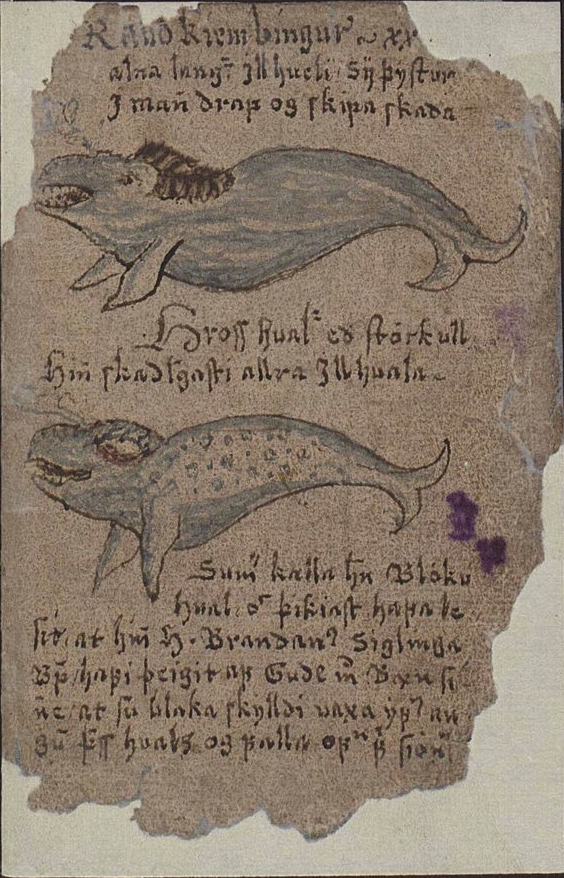 Raud kiembingur ~ xx
alna langr Jllhveli Sijþystur
J mañ drap og skipa skada
Hross hualr ed störkull
Hiñ skadlgasti allra Jllhuala ~
Sumer kalla hñ Blöku
hual oc þikiast hafa le
sit, at hiñ H. Brandanr Siglinga
Bp hafi þeigit af Gude m Bæn si
ne, at su blaka skylldi vaxa yfr au
gu þss hvals og falla